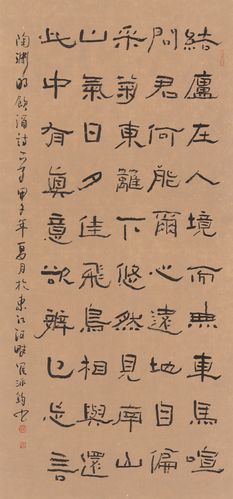 結廬在人境而無車馬喧
問君何能爾心遠地自偏
采菊東籬下悠然見南山
山氣日夕佳飛鳥相與還
此中有眞意欲辨已忘言
陶淵明飲酒詩一首年夏月於東江